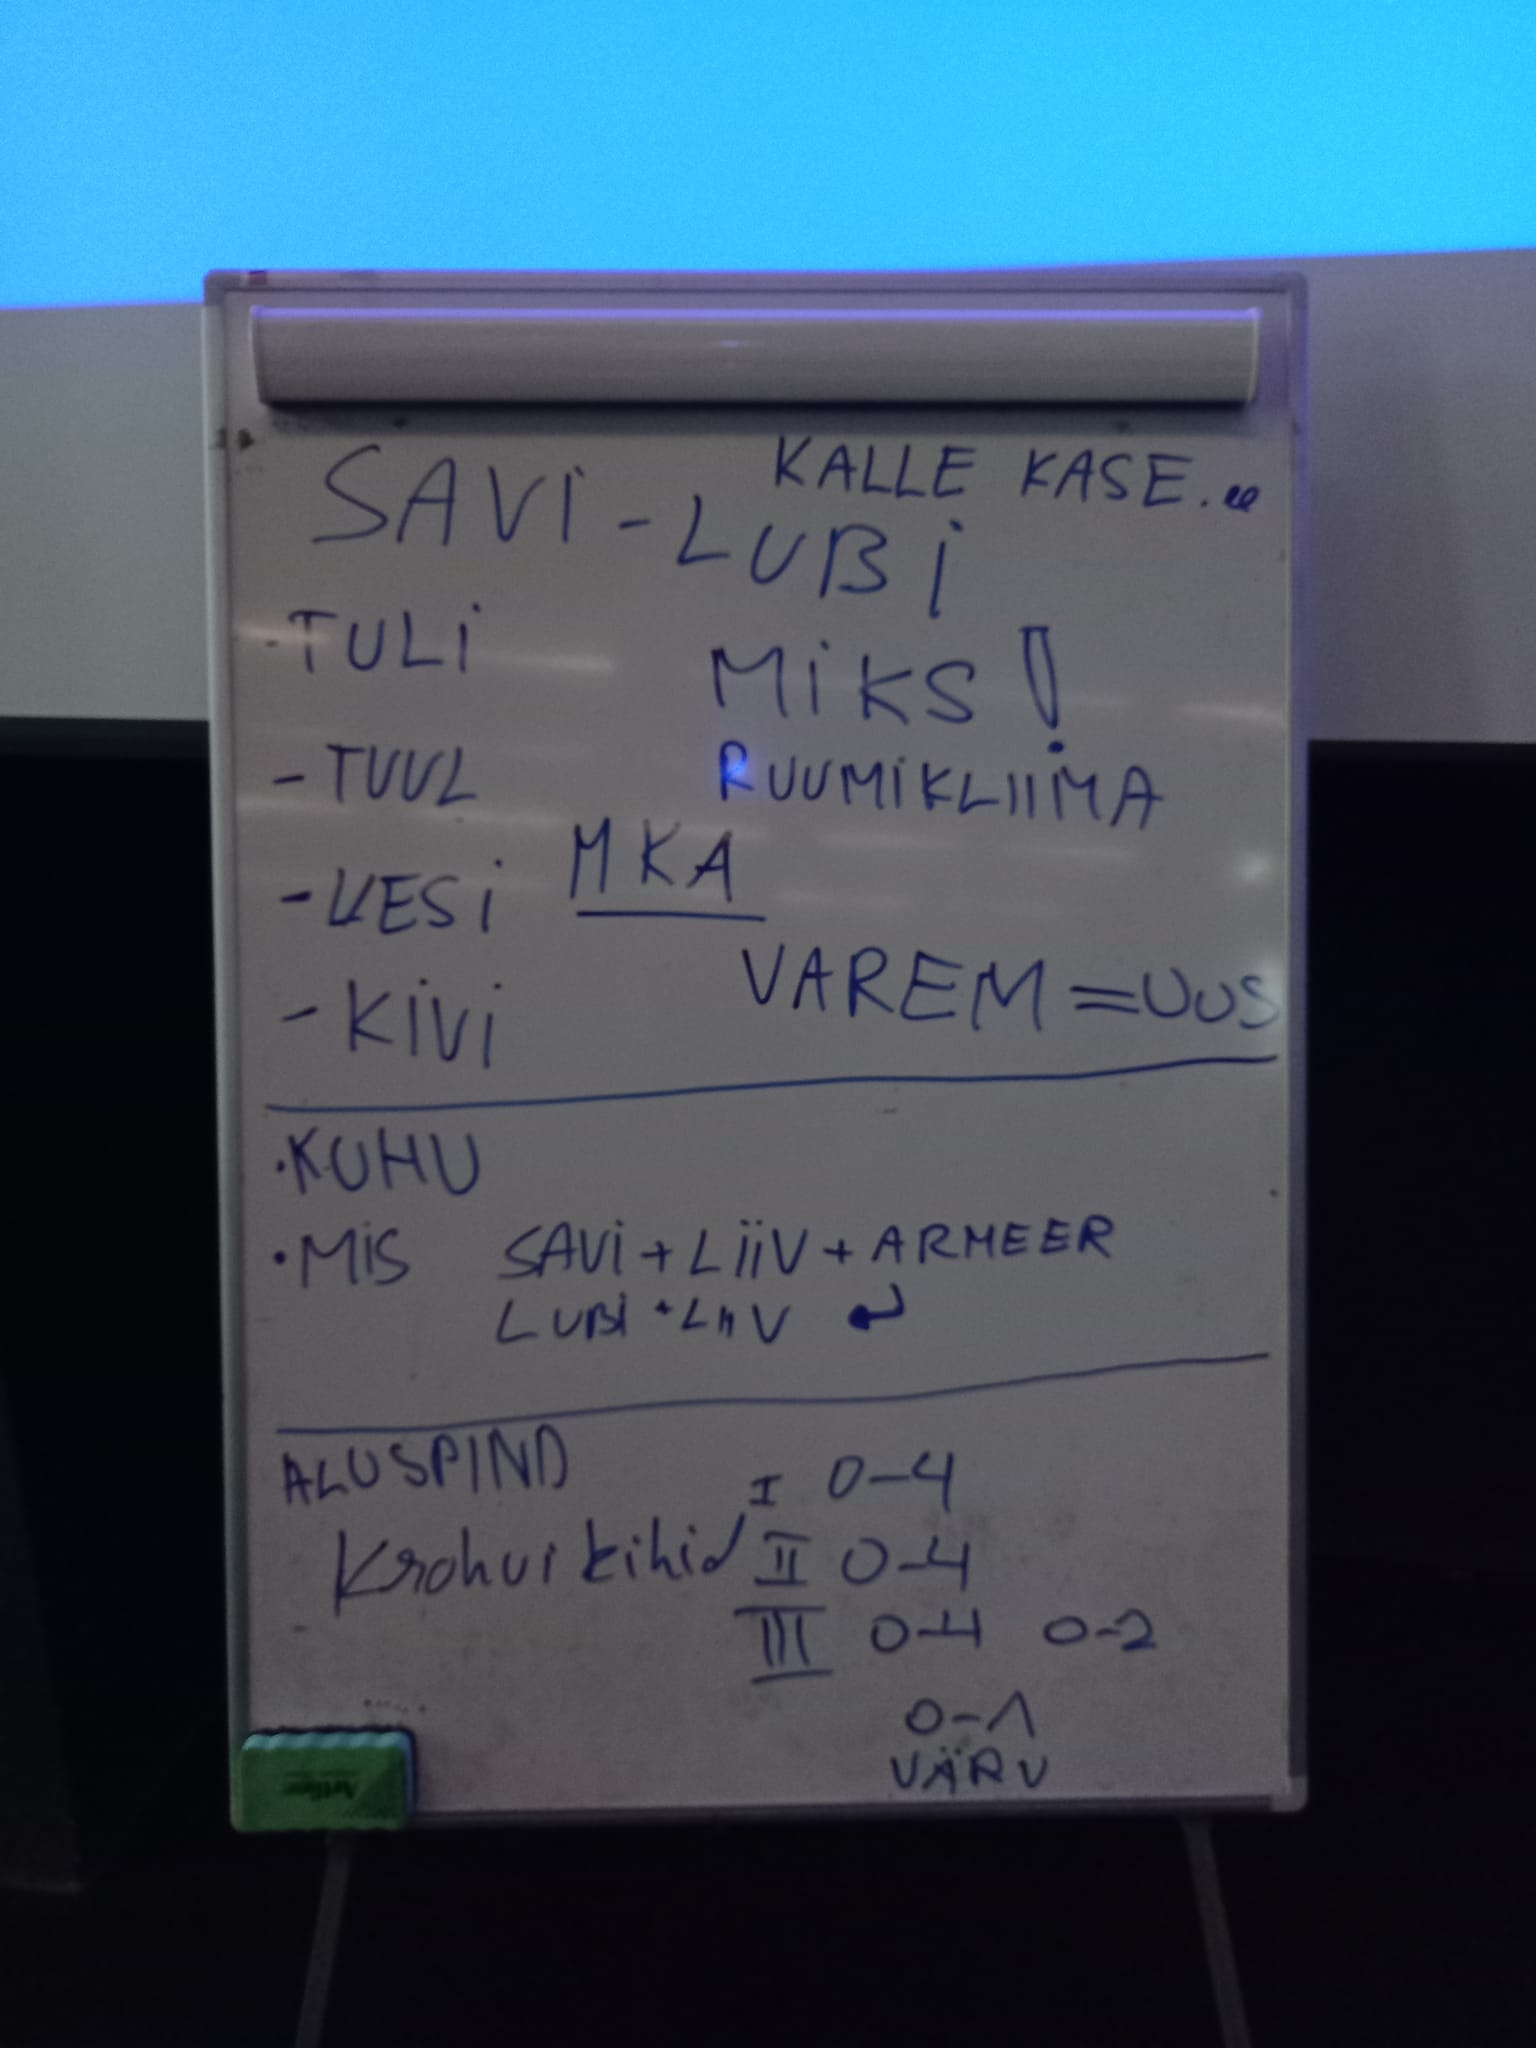 KALLE KASE..
SAVI - LUBI
- TULI
MIKS!
- TUUL
RUUMIKLIIMA
MKA
- VESI
VAREM = UUS
- KIVI
• KUHU
• MIS SAVI + LIIV + ARMEER
LUBI + LIIV ↵
ALUSPIND
I 0-4
Krohvi kihid II 0-4
III 0-4 0-2
0-1
VÄRV